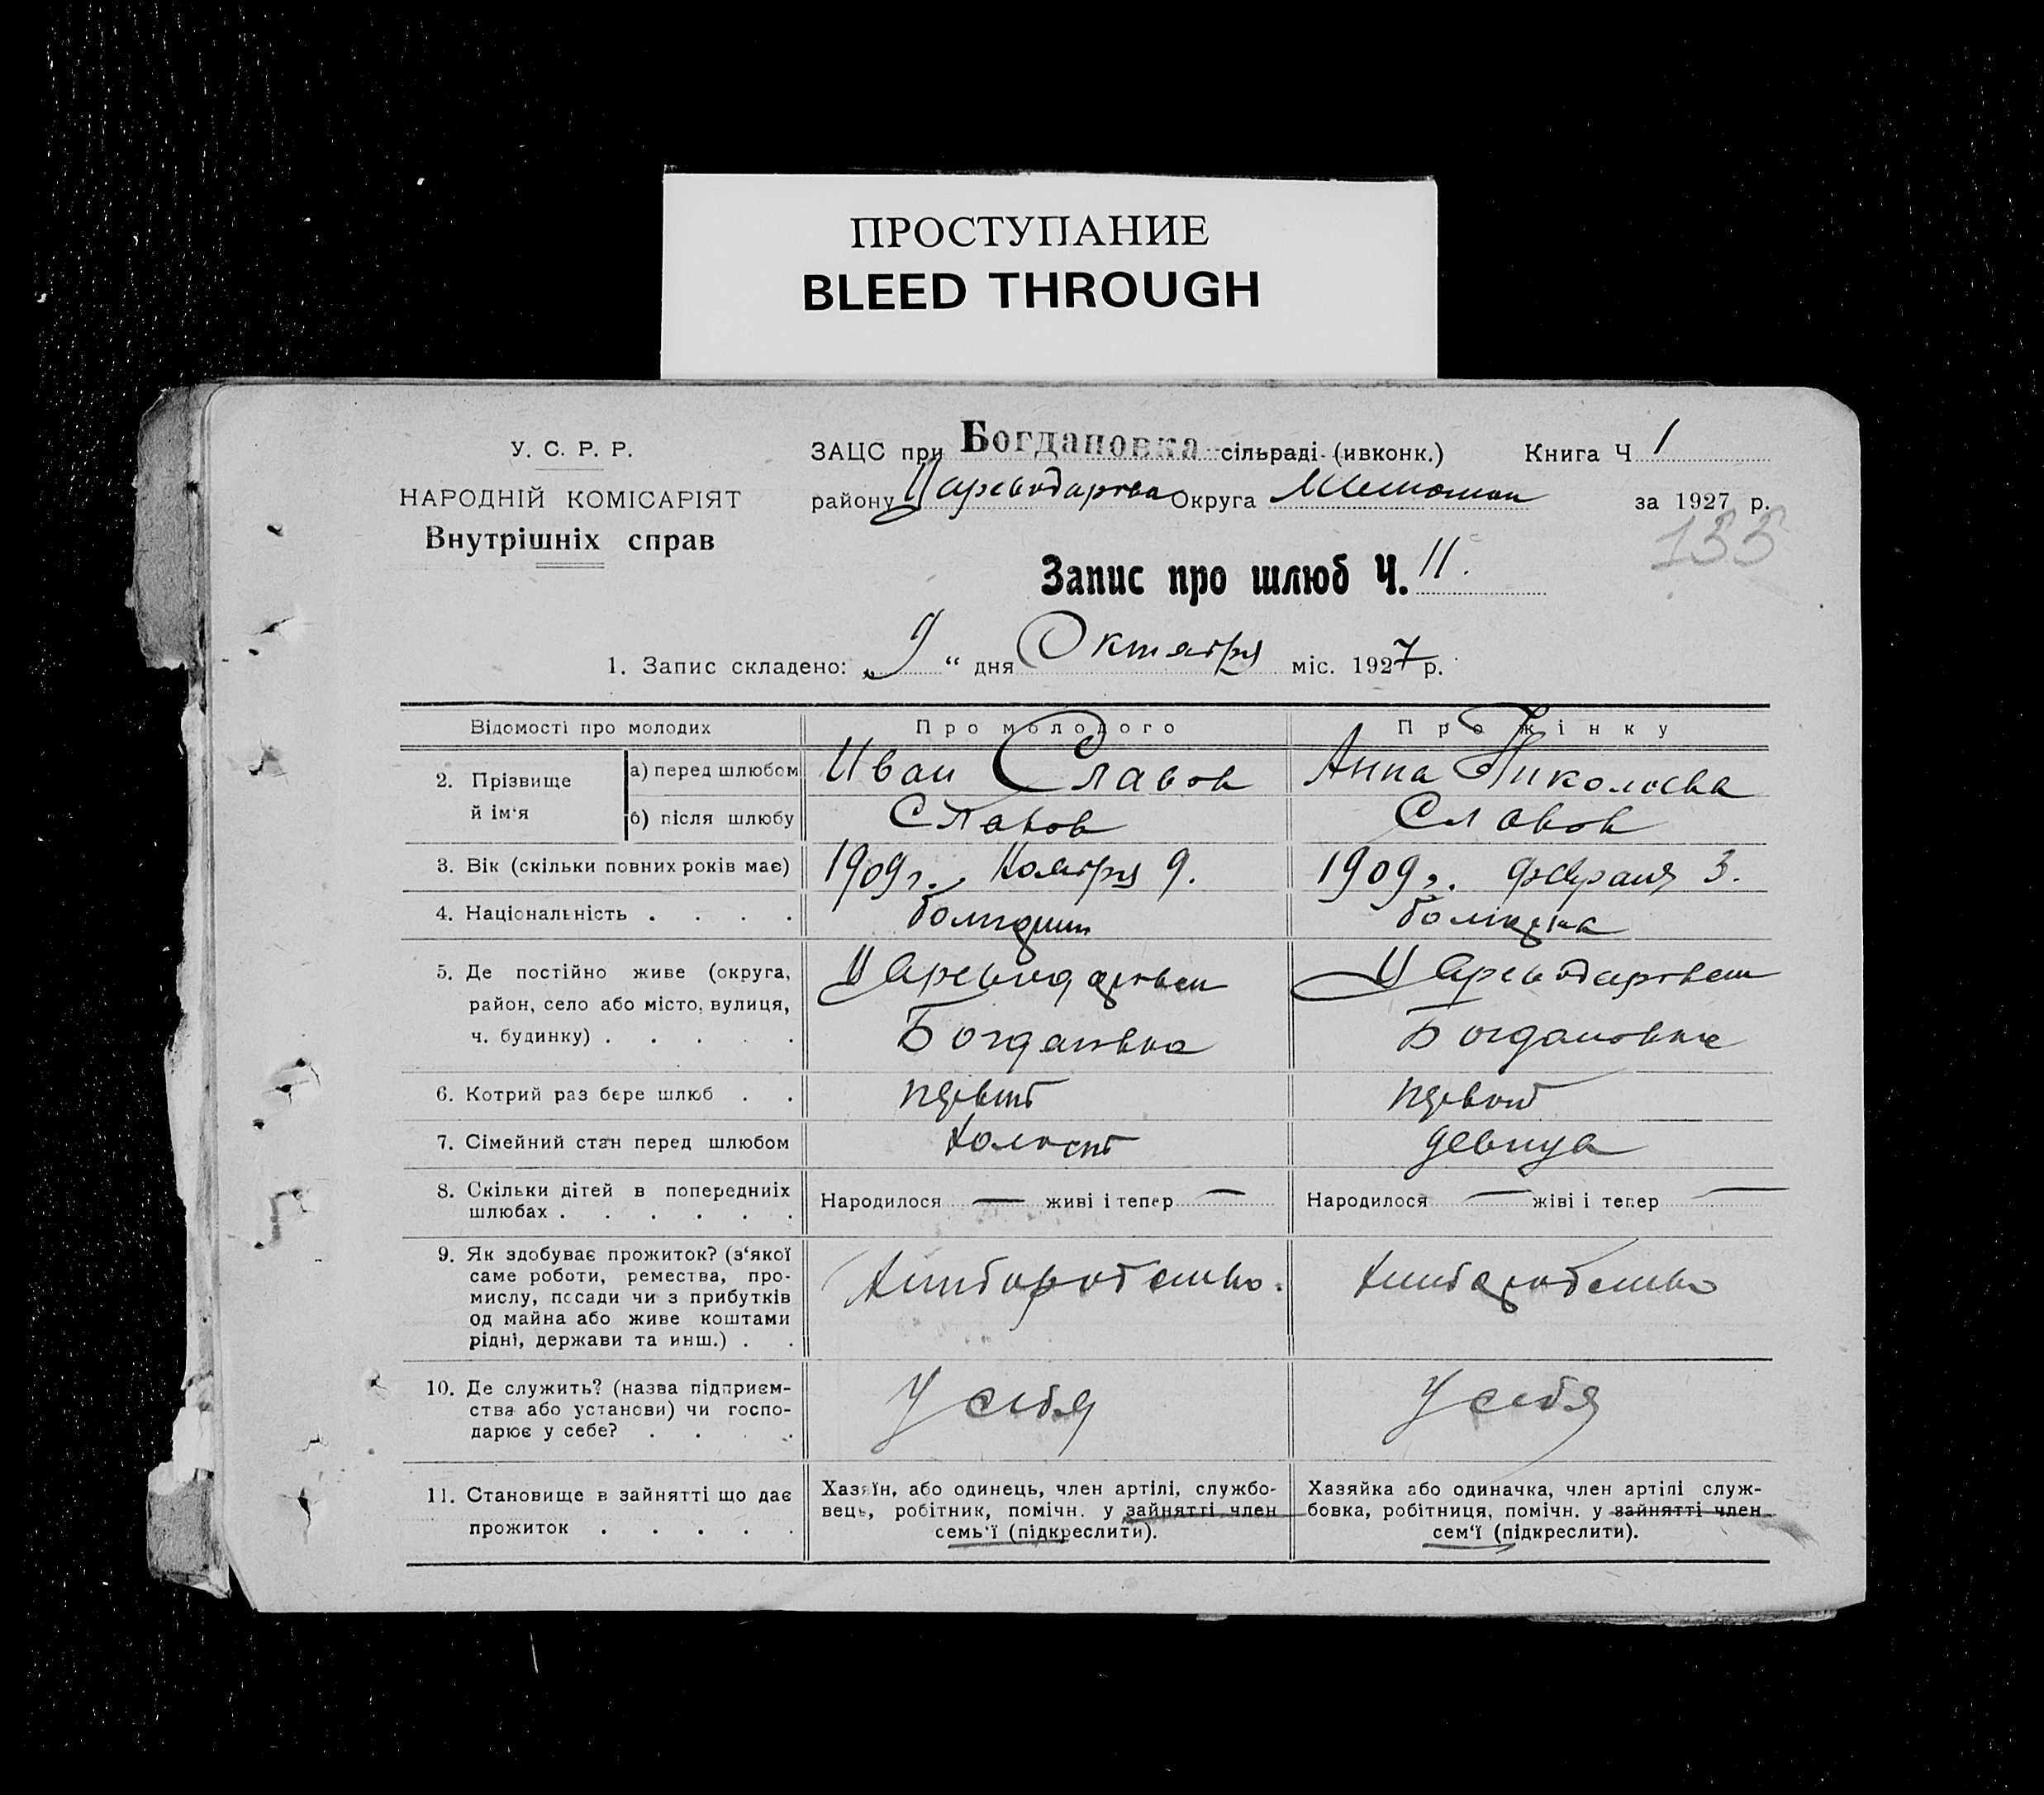 ПРОСТУПАНИЕ
BLEED THROUGH
У. С. Р. Р.
НАРОДНІЙ КОМІСАРІЯТ
Внутрішніх справ
ЗАЦС при Богдановка сільраді (ивконк.) Книга Ч 1
району Округа за 1927 р.
155
Запис про шлюб Ч. 11.
1. Запис складено: „ 9 “ дня Октября міс. 1927 р.
Відомості про молодих Про молодого Про жінку
2. Прізвище й ім‘я а) перед шлюбом Иван Славов Анна Николаева
б) після шлюбу Славов Славов
3. Вік (скільки повних років має) 1909 г. Ноября 9. 1909 г. февраля 3.
4. Національність . . . . болгарин болгарка
5. Де постійно живе (округа,
район, село або місто, вулиця,
ч. будинку) . . . . . Богдановка Богдановка
6. Котрий раз бере шлюб . . первый первый
7. Сімейний стан перед шлюбом холост девица
8. Скільки дітей в попередниіх
шлюбах . . . . . . Народилося — живі і тепер — Народилося — жіві і тепер —
9. Як здобуває прожиток? (з‘якої
саме роботи, ремества, про-
мислу, посади чи з прибутків
од майна або живе коштами
рідні, держави та инш.) . . хлиборобство. хлиборобство
10. Де служить? (назва підприєм-
ства або установи) чи госпо-
дарює у себе? . . . . У себя У себя
11. Становище в зайнятті що дає
прожиток . . . . .
Хазяїн, або одинець, член артілі, службо-
вець, робітник, помічн. у зайнятті член
семь‘ї (підкреслити).
Хазяйка або одиначка, член артілі служ-
бовка, робітниця, помічн. у зайнятті член
сем‘ї (підкреслити).